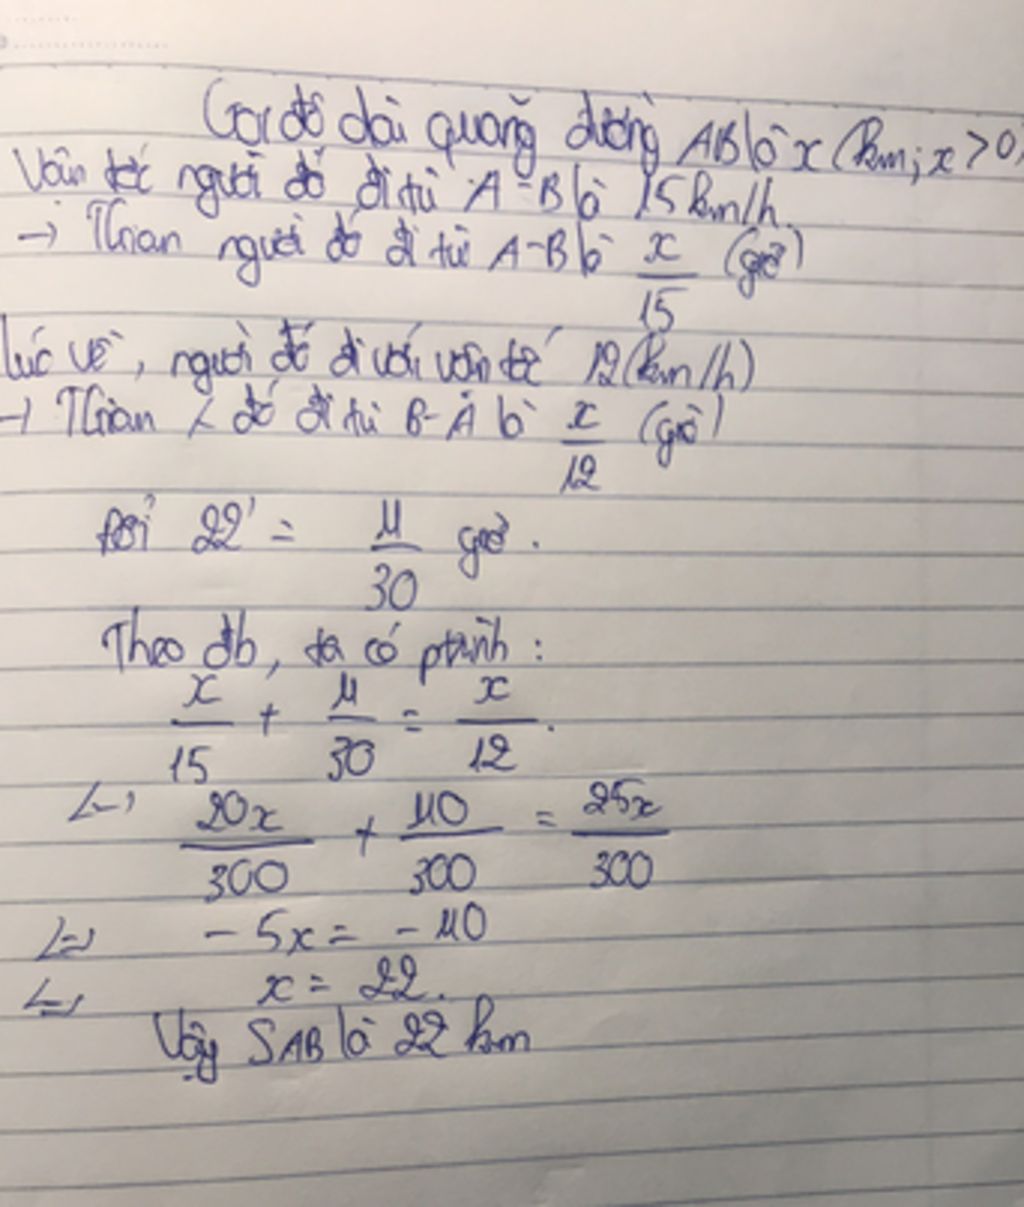 Gọi độ dài quãng đường AB là x (km; x > 0)
Vận tốc người đó đi từ A-B là 15km/h
→ Thgian người đó đi từ A-B là x/15 (giờ)
lúc về, người đó đi với vận tốc 12(km/h)
→ Thgian đó đi từ B-A là x/12 (giờ)
Đổi 22' = 11/30 giờ.
Theo đb, ta có ptrình:
x/15 + 11/30 = x/12.
<=> 20x/300 + 110/300 = 25x/300
<=> -5x = -110
<=> x = 22.
Vậy SAB là 22 km